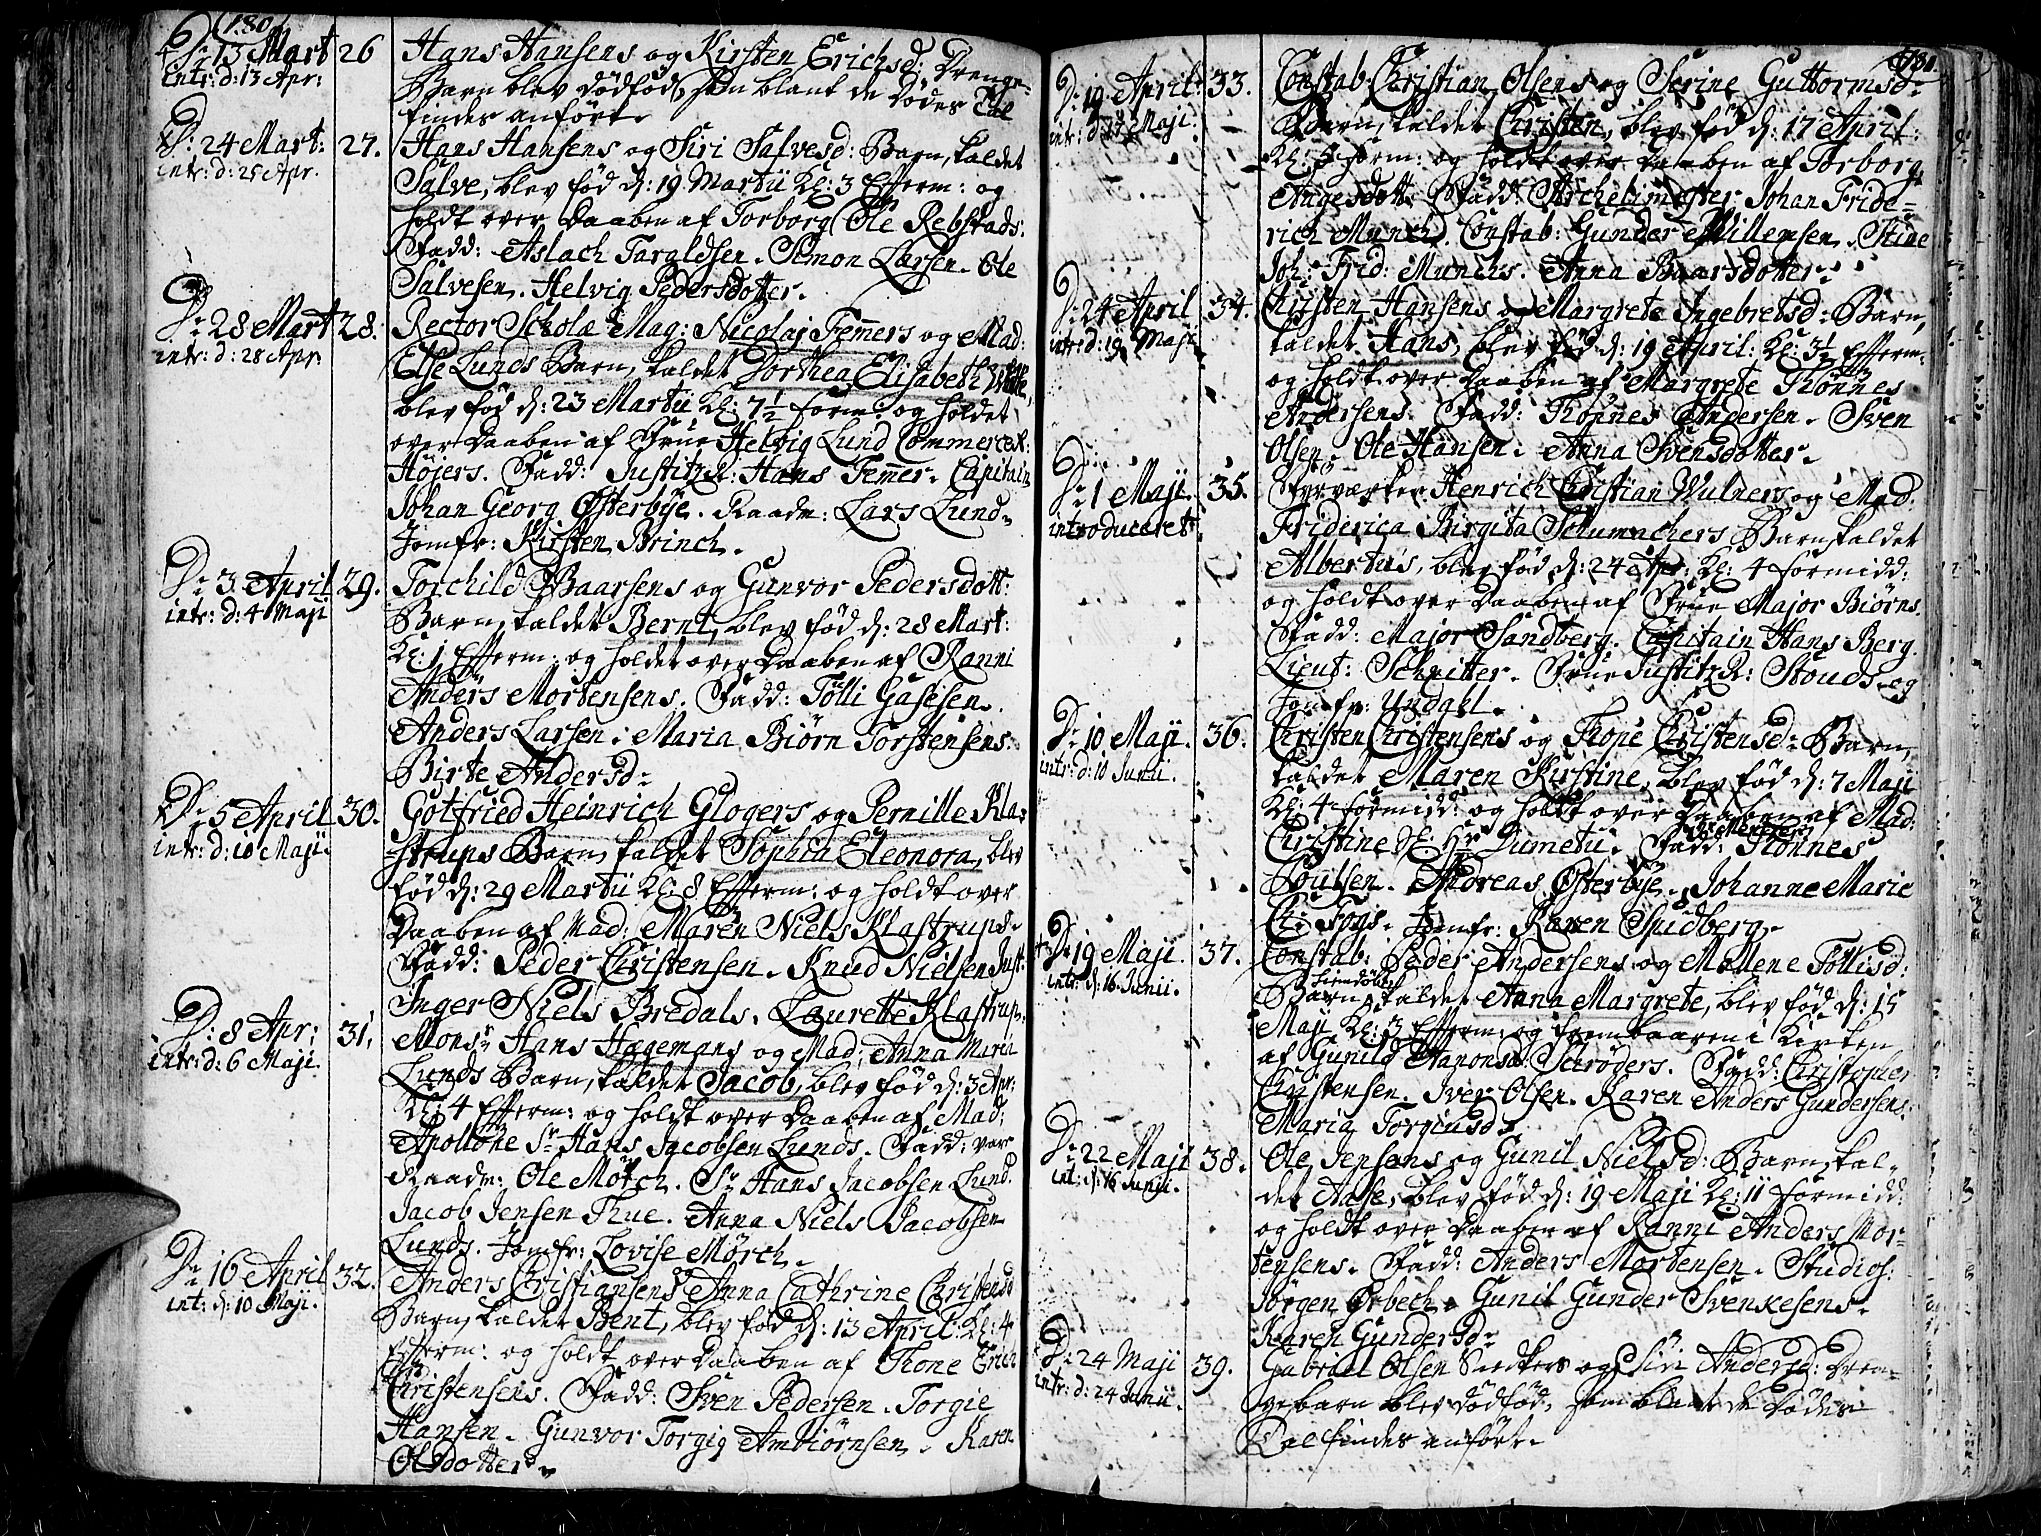 180
D: 13 Mart
intr: d: 13 Apr:
26
Hans Hansens og Kirsten Erichsd: Drenge-
Barn blev dødfød, som blant de Dødes Tal
findes anført.
D: 24 Mart:
intr: d: 25 Apr.
27.
Hans Hansens og Siri Salvesd: Barn, kaldet
Salve, blev fød d: 19 Martii Kl: 3 Efterm: og
holdt over Daaben af Torborg Ole Rebstads.
Fadd: Aslach Taraldsen. Simon Larsen. Ole
Salvesen. Helvig Pedersdotter.
D: 28 Mart
intr: d: 28 Apr:
28.
Rector Scholæ Mag: Nicolaj Femmers og Mad:
Else Lunds Barn, kaldet Dorthea Elisabeth
blev fød d: 23 Martii Kl: 7½ form: og holdet
over Daaben af Frue Helvig Lund Commerce R:
Höjers. Fadd: Justitz R: Hans Femmer. Capitain
Johan Georg Østerbye. Raadm: Lars Lund.
Jomfr: Kirsten Brinch.
D: 3 April
intr: d: 4 Maji
29.
Torchild Baarsens og Gunvor Pedersdott:
Barn, kaldet Bernt, blev fød d: 28 Mart:
Kl: 1 Efterm: og holdet over Daaben af Ranni
Anders Mortensens. Fadd: Tölli Gasesen.
Anders Larsen. Maria Biørn Torstensens.
Birte Andersd:
D: 5 April
intr: d: 10 Maji.
30.
Gotfried Heinrich Glogers og Pernille Kla-
strups Barn, kaldet Sophia Eleonora, blev
fød d: 29 Martii Kl: 8 Efterm: og holdt over
Daaben af Mad: Maren Niels Klastrups.
Fadd: Peder Christensen. Knud Nielsen Just.
Inger Niels Bredals. Laurette Klastrup.
D: 8 Apr:
intr: d: 6 Maji.
31.
Monsr Hans Hagemans og Mad: Anna Maria
Lunds Barn, kaldet Jacob, blev fød d: 3 Apr:
Kl: 4 Efterm: og holdt over Daaben af Mad:
Apollone Sr Hans Jacobsen Lunds. Fadd:
Raadm: Ole Mørch. Sr Hans Jacobsen Lund.
Jacob Jensen Thue. Anna Niels Jacobsen
Lunds. Jomfr: Lovise Mørch.
D: 16 April
int: d: 10 Maji.
32.
Anders Christiansens og Anna Cathrine Christensd
Barn, kaldet Bent, blev fød d: 13 April: Kl: 4
Efterm: og holdt over Daaben af Thone Erich
Christensens. Fadd: Sven Pedersen. Torgie
Hansen. Gunvor Torgig Ambiørnsen. Karen
Olsdotter.
181
D: 19 April:
intr: d: Maji.
33.
Constab: Christian Olsens og Serine Guttormsd:
Barn, kaldet Christen, blev fød d: 17 April:
Kl: 3 form: og holdt over Daaben af Torborg
Aagesdott: Fadd: Archelimester Johan Fride-
rich Munch. Constab: Gunder Willemsen. Stine
Joh: Frid: Munchs. Anna Baarsdotter.
D: 24 April
intr: d: 19 Maji
34.
Christen Hansens og Margrete Ingebretsd: Barn,
kaldet Hans, blev fød d: 19 April: Kl: 3½ Efterm:
og holdt over Daaben af Margrete Thönnes
Andersens. Fadd: Thönnes Andersen. Sven
Olsen. Ole Hansen. Anna Svensdotter.
D: 1 Maji.
introduceret
35.
Fyrverker Henrich Christian Wulners og Mad:
Friderica Birgita Schumachers Barn, kaldet
Albertus, blev fød d: 24 Apr: Kl: 4 formidd:
og holdt over Daaben af Frue Major Biörns.
Fadd: Major Sandberg. Capitain Hans Berg.
Lieut: Schnitter. Frue Justitz R: Stouds. og
Jomfr: Undahl.
D: 10 Maji.
intr: d: 10 Junii.
36.
Christen Christensens og Thone Christensd: Barn,
kaldet Maren Kirstine, blev fød d: 7 Maji
Kl: 4 formidd: og holdt over Daaben af Mad:
Christine Hr Dumetii. Fadd: Thönnes
Poulsen. Andreas Østerbye. Johanne Marie
Fogs. Jomfr: Karen Spidberg.
D: 19 Maji.
intr: d: 16 Junii.
37.
Constab: Peder Andersens og Mallene Töllisd:
hiemdøbt
Barn, kaldet Anna Margrete, blev fød d: 15
Maji Kl: 3 Efterm: og frembaaren i Kirken
af Gunild Schröders. Fadd: Christopher
Christensen. Iver Olsen. Karen Anders Gundersens.
Maria Torginsd:
D: 22 Maji
int: d: 16 Junii.
38.
Ole Jensens og Gunil Nielsd: Barn, kal-
det Aase, blev fød d: 19 Maji Kl: 11 formidd:
og holdt over Daaben af Ranni Anders Mor-
tensens. Fadd: Anders Mortensen. Studios:
Jørgen Ørbech. Gunil Gunder Svenkesens.
Karen Gundersd:
D: 24 Maji
intr: d: 24 Junii.
39.
Gabriel Olsen Snedkers og Siri Andersd: Dren-
gebarn blev dødfød, som blant de Dødes
Tal findes anført.